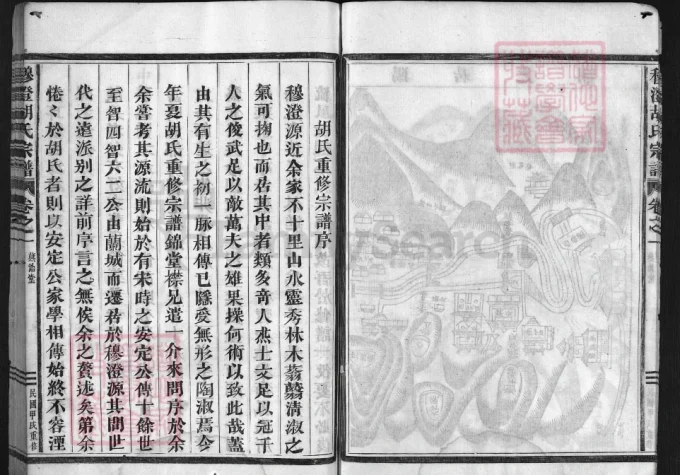 穆澄胡氏宗譜
卷之一
胡氏重修宗譜序
穆澄源近余家不十里山水靈秀林木蓊蘙清淑之
氣可掬也而居其中者類多奇人燕士文足以冠千
人之俊武足以敵萬夫之雄果操何術以致此哉蓋
由其有生之初一脈相傳已隱受無形之陶淑焉今
年夏胡氏重修宗譜錦堂襟兄遣一介來問序於余
余嘗考其源流則始於有宋時之安定公傳十餘世
至智四智六二公由蘭城而遷居於穆澄源其間世
代之遠派別之詳前序言之無俟余之贅述矣第余
惓〻於胡氏者則以安定公家學相傳始終不容湮
穆澄胡氏宗譜
卷之一
民國甲氏重修